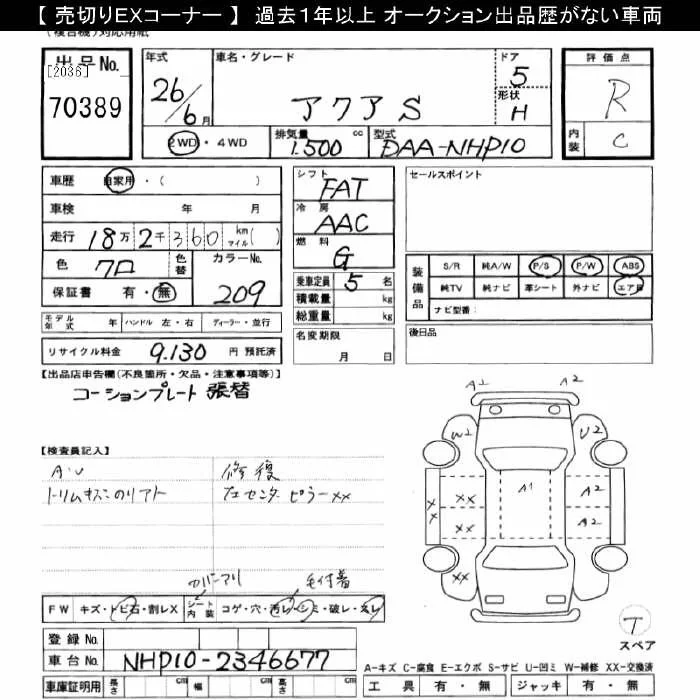 【 売切りEXコーナー 】 過去1年以上 オークション出品歴がない車両
(複合機)対応用紙
出品No.
[2036]
70389
年式
26/6月
車名・グレード
アクア S
ドア
5
形状
H
評価点
R
内装
C
2WD・4WD
排気量
1.500 cc
型式
DAA-NHP10
車歴 自家用・( )
車検 年 月
走行 18万2千360 km マイル( )
色 クロ 色替 カラーNo. 209
保証書 有・無
モデル年式 年 ハンドル 左・右 ディーラー・並行
リサイクル料金 9.130 円 預託済
シフト FAT
冷房 AAC
燃料 G
乗車定員 5 名
積載量 kg
総重量 kg
名変期限
月 日
セールスポイント
装備品
S/R 純A/W P/S P/W ABS
純TV 純ナビ 革シート 外ナビ エアB
ナビ型番:
後日品
【出品店申告欄(不良箇所・欠品・注意事項等)】
コーションプレート張替
【検査員記入】
修復
左センターピラーxx
FW キズ・トビ石・割レX シート内装 コゲ・穴・汚レ・シミ・破レ・スレ
登録No.
車台No. NHP10-2346677
車庫証明用 長さ cm 幅 cm 高さ cm
A1 A2
W2 U2
XX XX A1 A2
XX A2
XX
T
スペア
A-キズ C-腐食 E-エクボ S-サビ U-凹ミ W-補修 XX-交換済
工具 有・無 ジャッキ 有・無